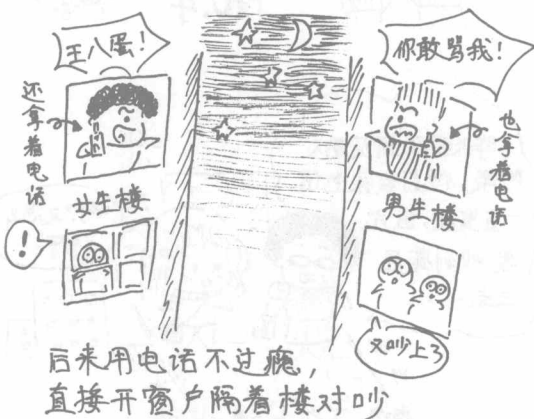 王八蛋!
你敢骂我!
还拿着电话
也拿着电话
女生楼
男生楼
!
又吵上了
后来用电话不过瘾，
直接开窗户隔着楼对吵